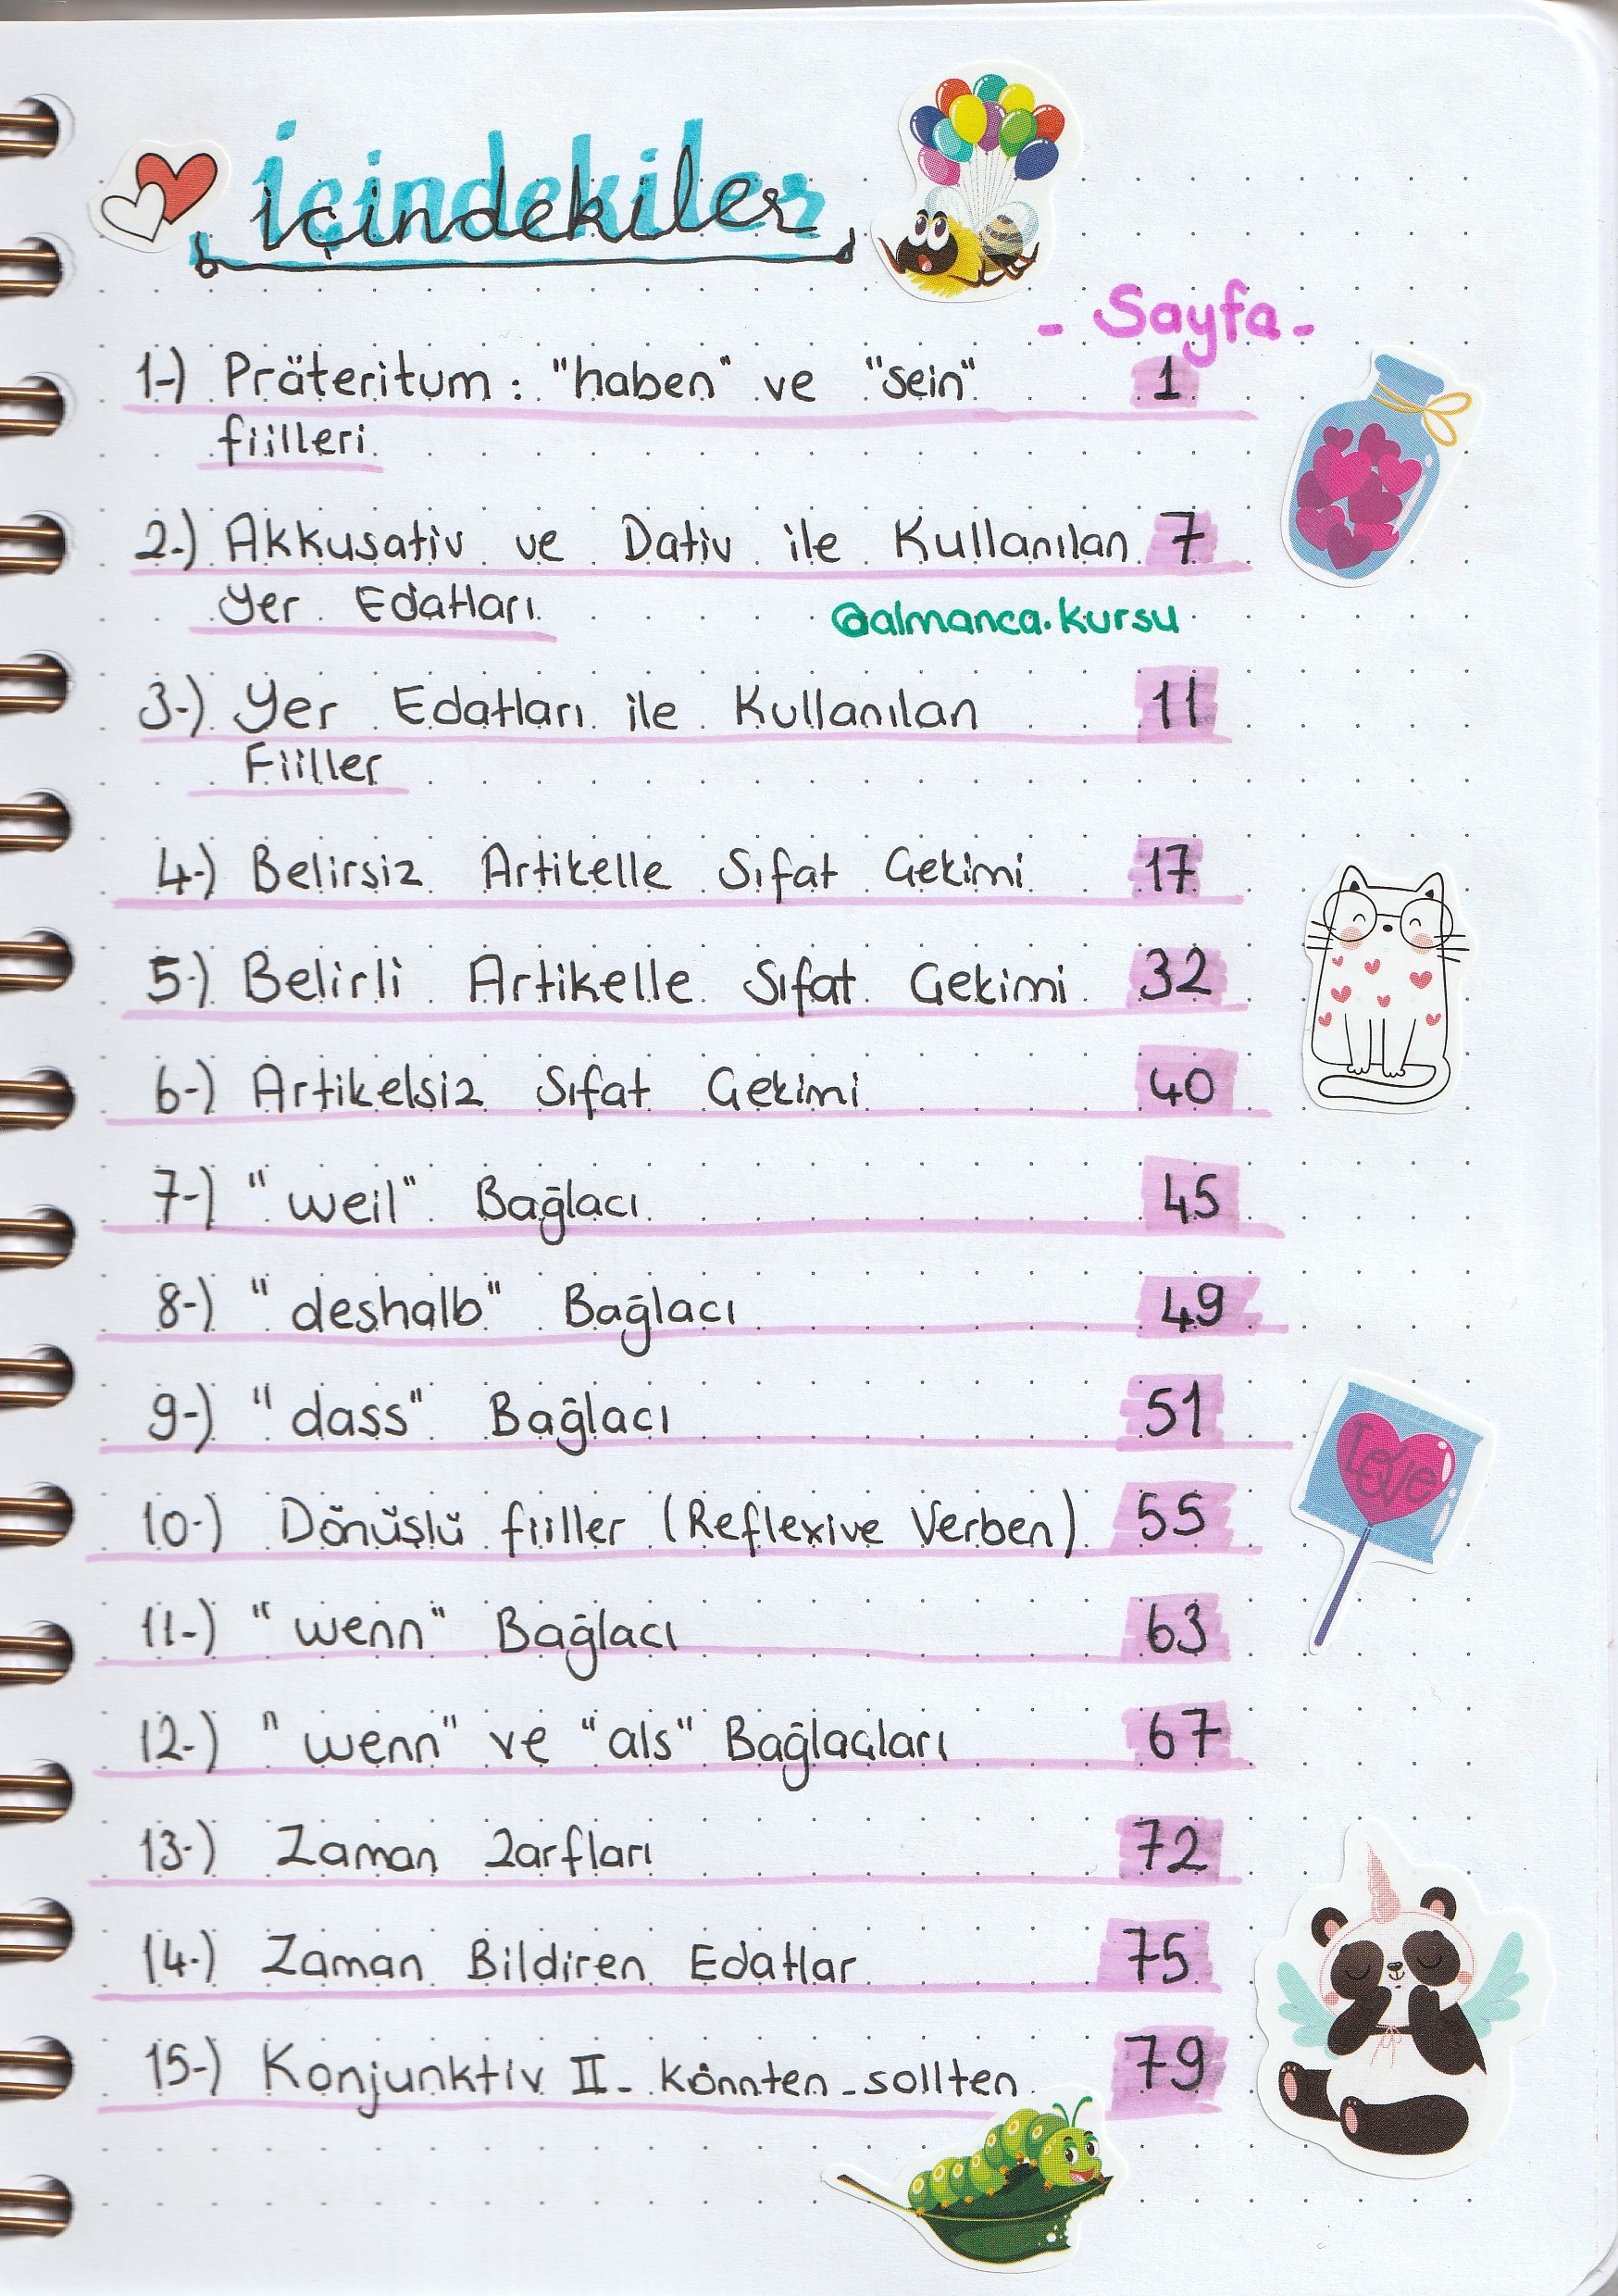 içindekiler
- Sayfa -
1-) Präteritum : "haben" ve "sein" 1
fiilleri
2-) Akkusativ ve Dativ ile Kullanılan 7
Yer Edatları
@almanca.kursu
3-) Yer Edatları ile Kullanılan 11
Fiiller
4-) Belirsiz Artikelle Sıfat Çekimi 17
5-) Belirli Artikelle Sıfat Çekimi 32
6-) Artikelsiz Sıfat Çekimi 40
7-) "weil" Bağlacı 45
8-) "deshalb" Bağlacı 49
9-) "dass" Bağlacı 51
10-) Dönüşlü fiiller (Reflexive Verben) 55
11-) "wenn" Bağlacı 63
12-) "wenn" ve "als" Bağlaçları 67
13-) Zaman Zarfları 72
14-) Zaman Bildiren Edatlar 75
15-) Konjunktiv II - könnten - sollten 79
Love